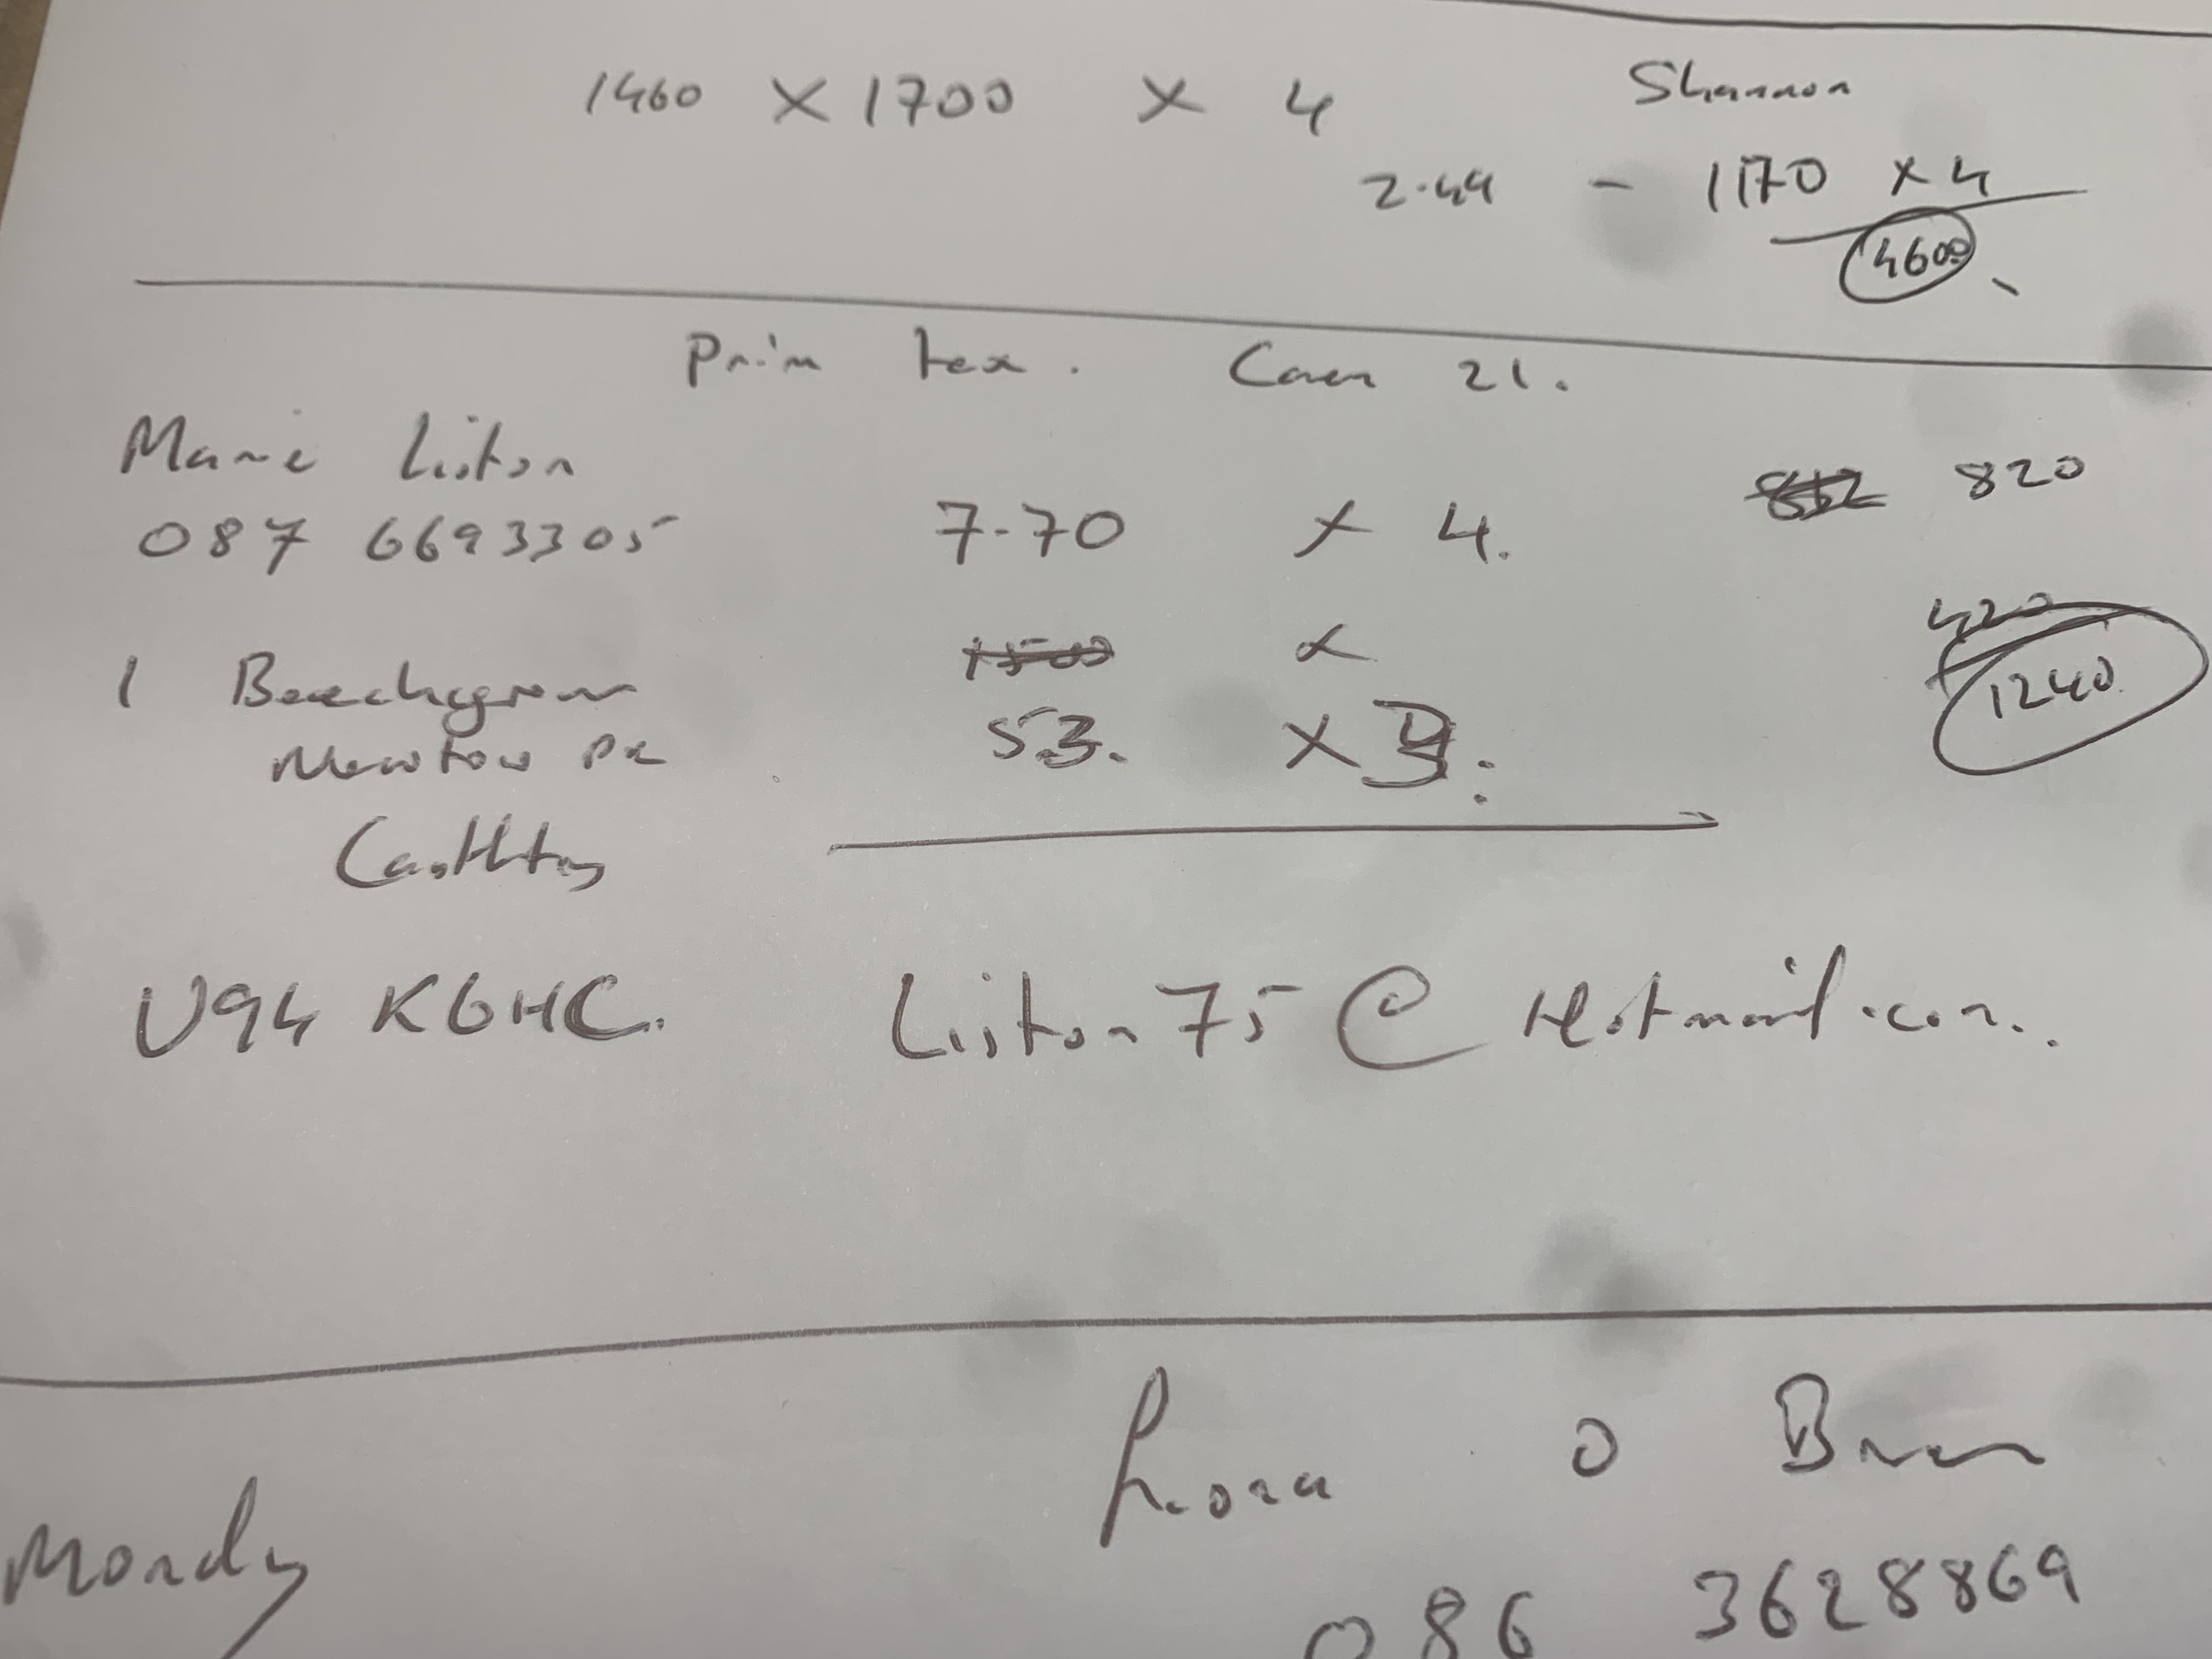 1460 X 1700 X 4
Shannon
2.44 - 1170 x 4
4600
Prim tex. Caen 21.
Marie Liston
820
087 6693305
7.70 x 4.
420
1240
1 Beechgrove
53. X
Newtown Pk
Castletroy
V94 K6HC.
Liston75@Hotmail.com.
Fiona O Brien
Monday
086 3628869